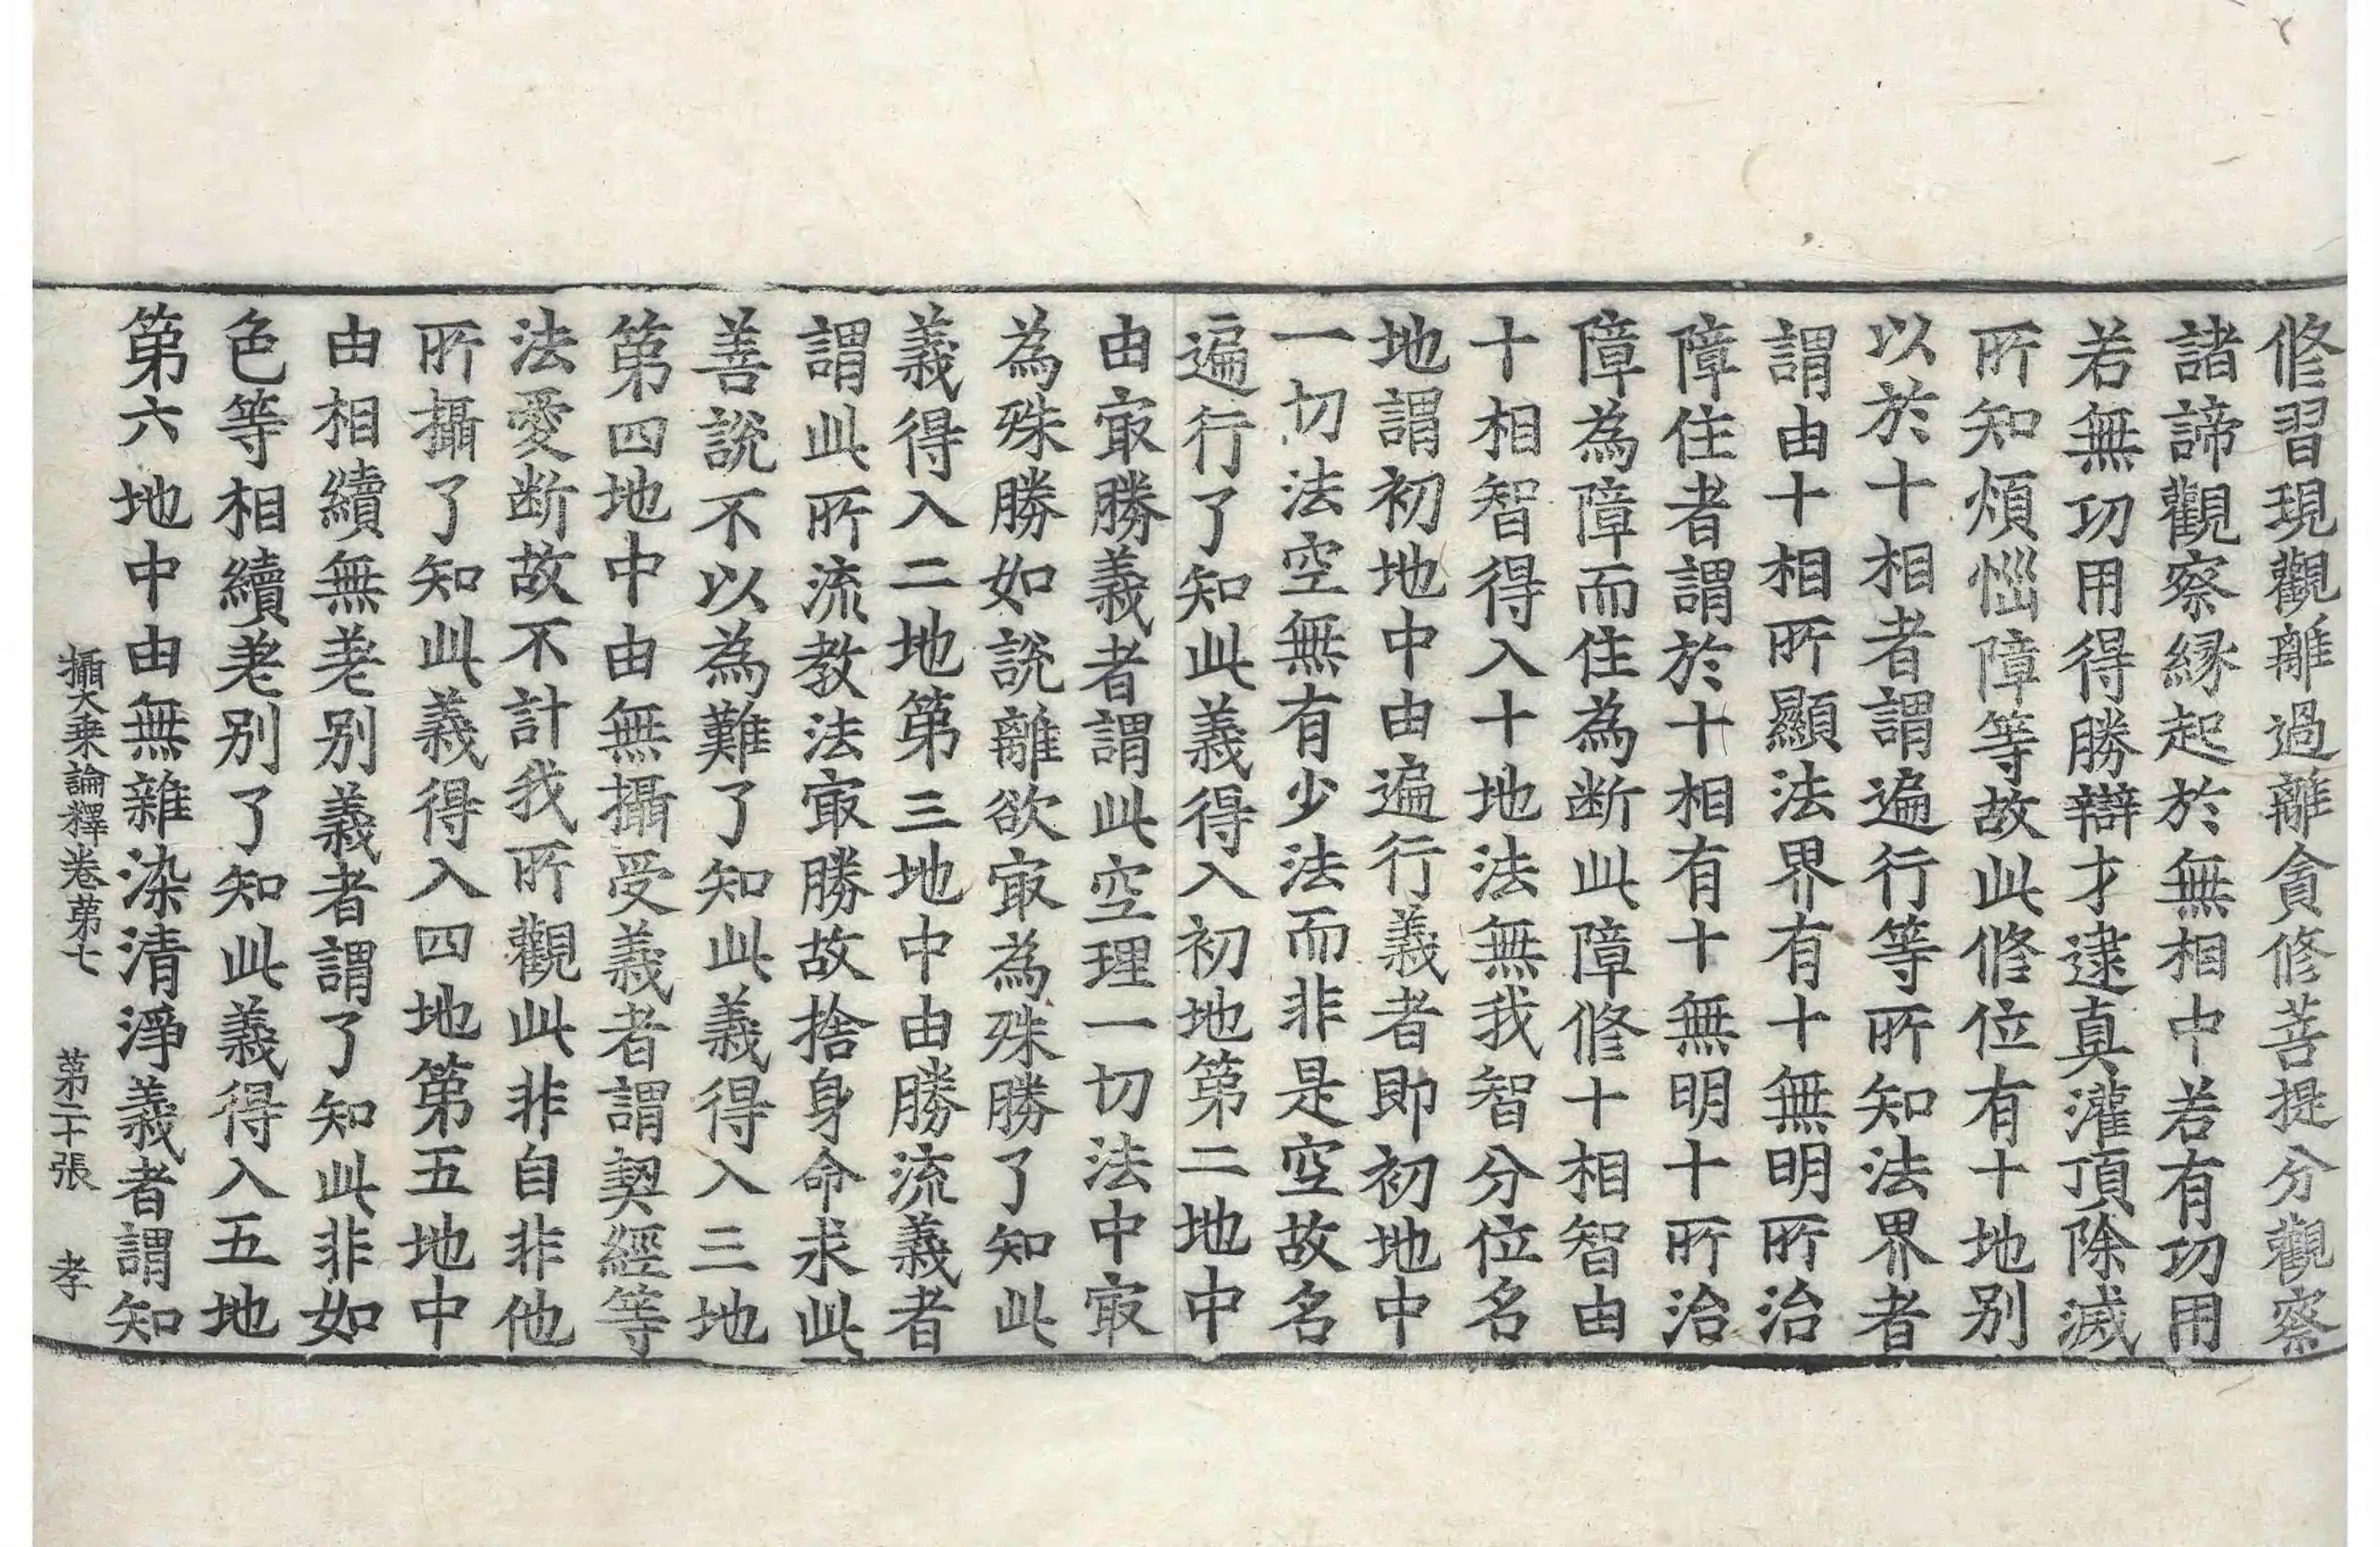 修習現觀離過離貪修菩提分觀察
諸諦觀察緣起於無相中若有功用
若無功用得勝辯才逮真灌頂除滅
所知煩惱障等故此修位有十地别
以於十相者謂遍行等所知法界者
謂由十相所顯法界有十無明所治
障住者謂於十相有十無明十所治
障為障而住為断此障修十相智由
十相智得入十地法無我智分位名
地謂初地中由遍行義者即初地中
一切法空無有少法而非是空故名
遍行了知此義得入初地第二地中
由㝡勝義者謂此空理一切法中㝡
為殊勝如說離欲㝡為殊勝了知此
義得入二地第三地中由勝流義者
謂此所流教法㝡勝故捨身命求此
善說不以為難了知此義得入三地
第四地中由無攝受義者謂契經等
法愛断故不計我所觀此非自非他
所攝了知此義得入四地第五地中
由相續無差别義者謂了知此非如
色等相續差别了知此義得入五地
第六地中由無雜染清淨義者謂知
攝大乘論釋卷第七　第二十張　孝